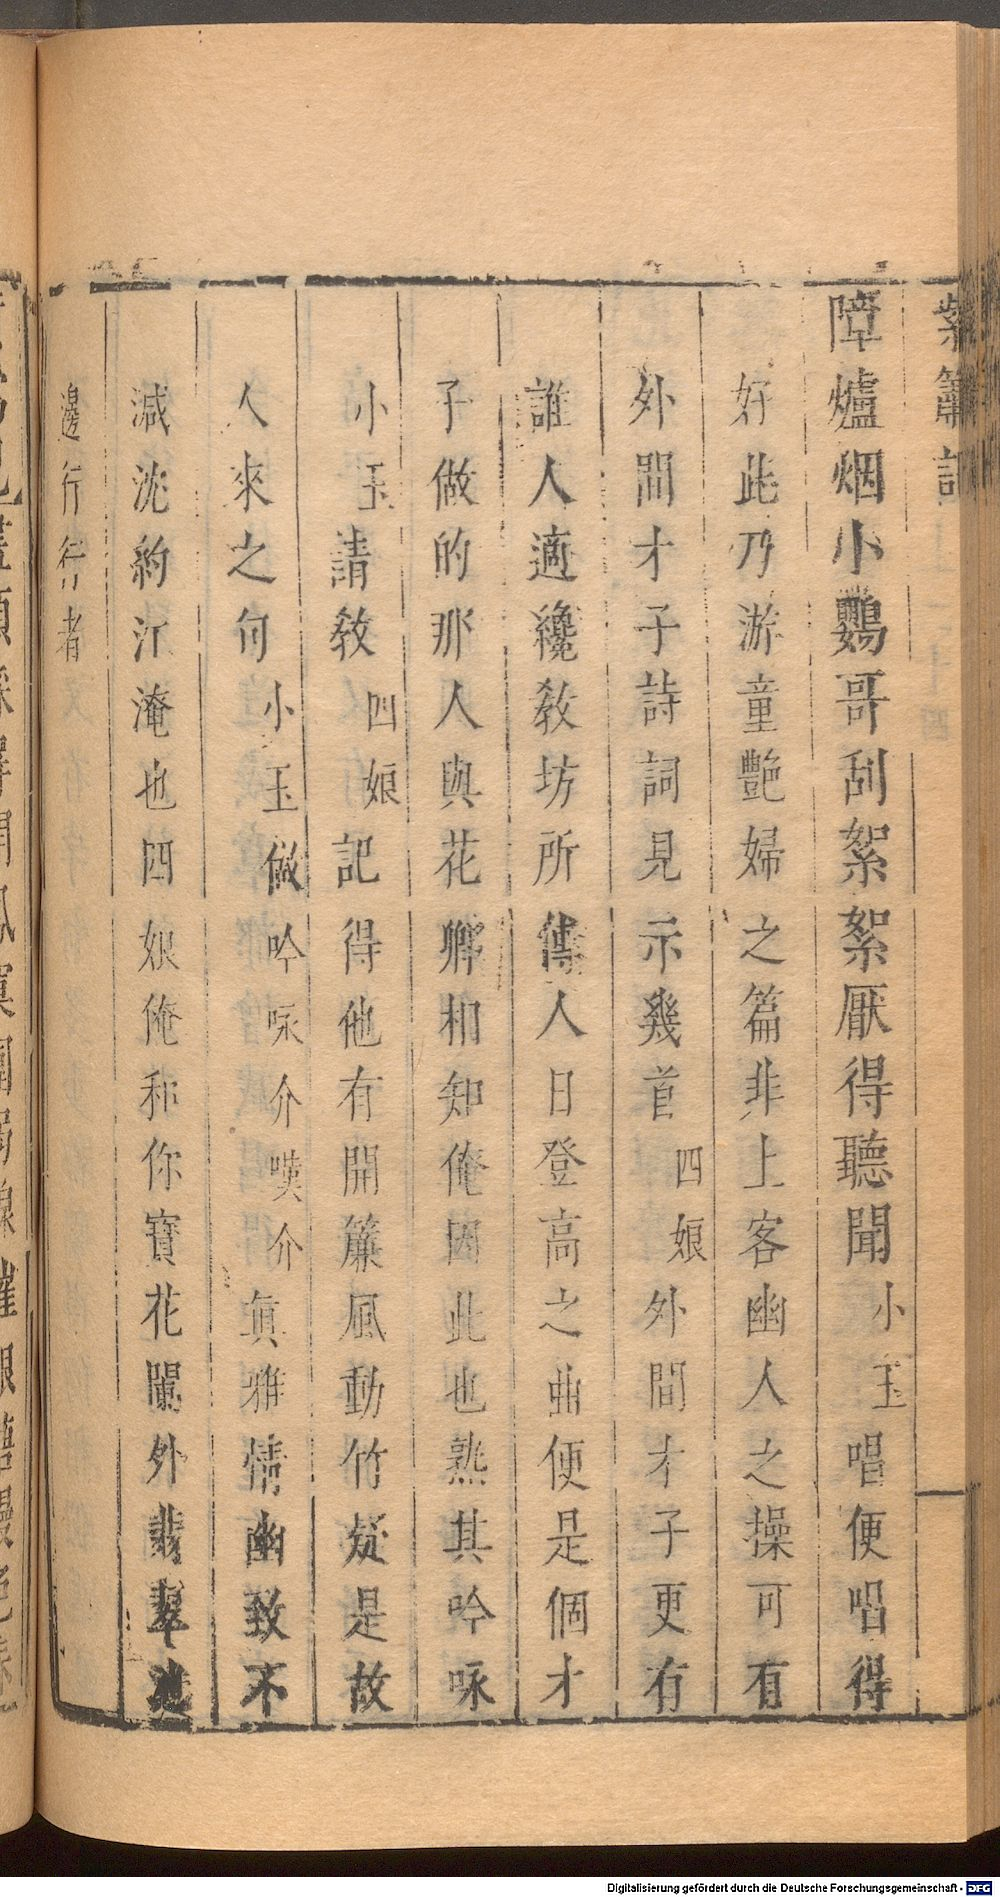 紫簫記
障爐烟小鸚哥刮絮絮厭得聽聞小玉唱便唱得
好此乃游童艶婦之篇非上客幽人之操可有
外間才子詩詞見示幾首四娘外間才子更有
誰人適纔敎坊所傳人日登高之曲便是個才
子做的那人與花卿相知俺因此也熟其吟咏
小玉請敎四娘記得他有開簾風動竹疑是故
人來之句小玉做吟咏介嘆介眞雅情幽致不
減沈約江淹也四娘俺和你寶花闌外翡翠池
邊行行者
Digitalisierung gefördert durch die Deutsche Forschungsgemeinschaft - DFG